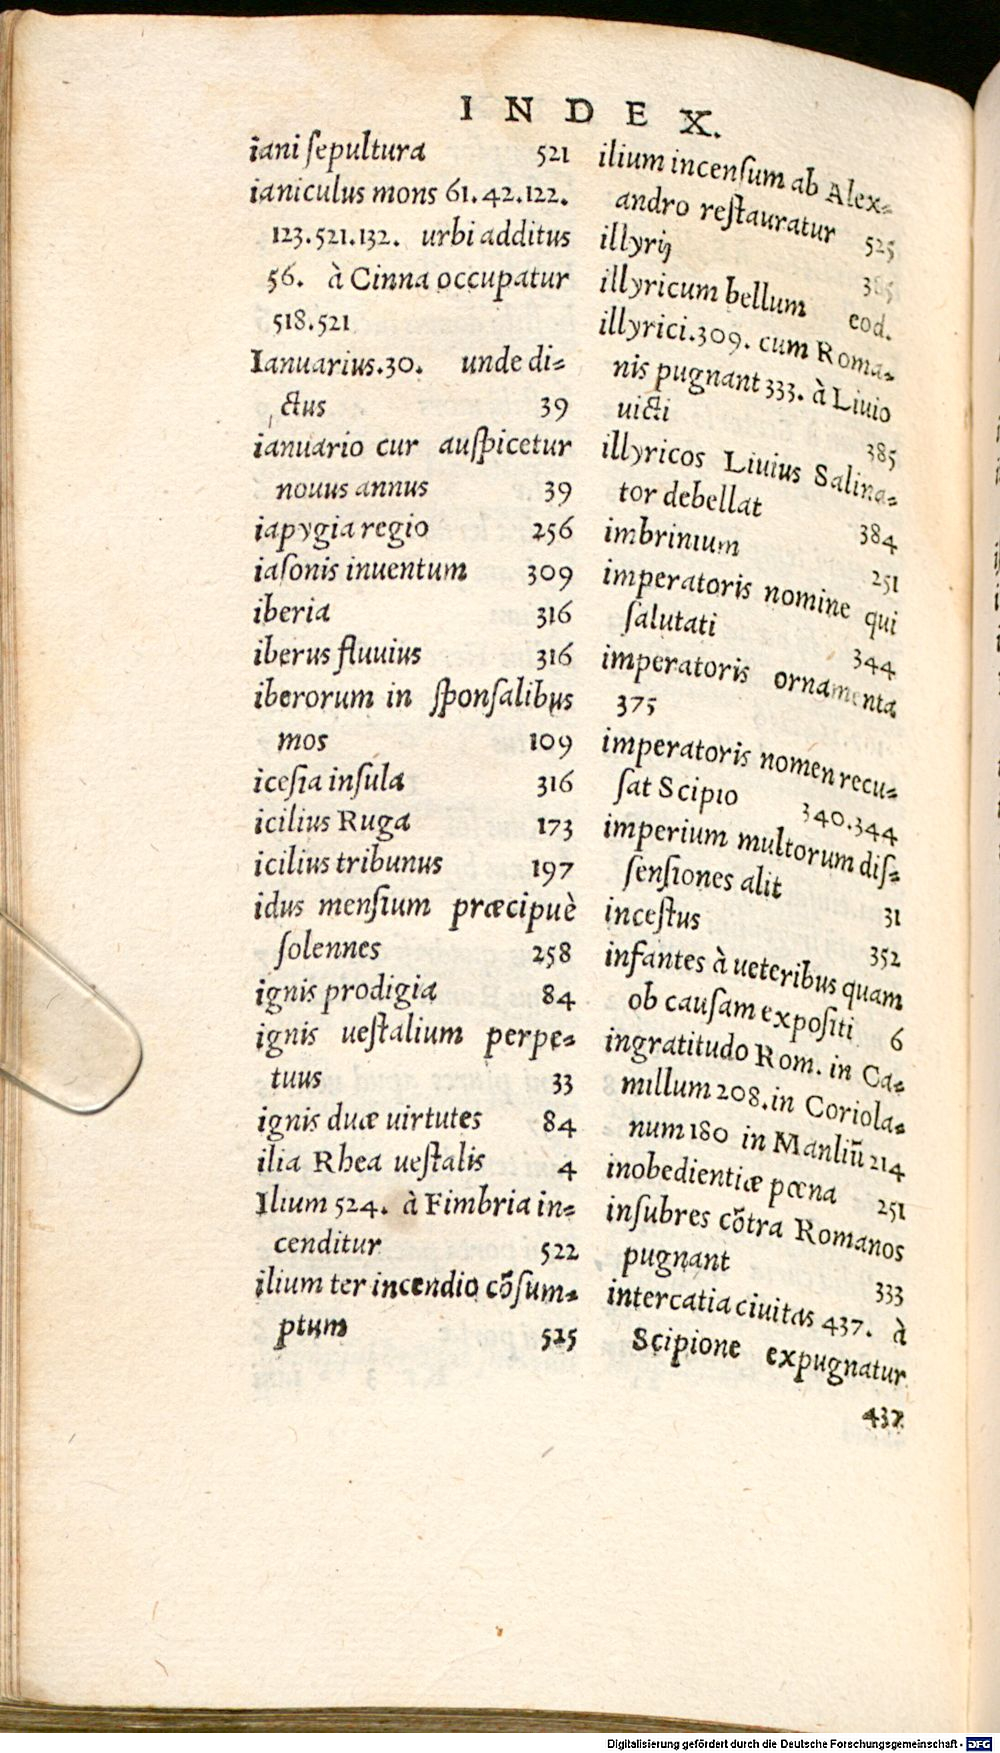 INDEX.
iani ſepultura 521
ianiculus mons 61.42.122.
123.521.132. urbi additus
56. à Cinna occupatur
518.521
Ianuarius.30. unde di=
ctus 39
ianuario cur auſpicetur
nouus annus 39
iapygia regio 256
iaſonis inuentum 309
iberia 316
iberus fluuius 316
iberorum in ſponſalibus
mos 109
iceſia inſula 316
icilius Ruga 173
icilius tribunus 197
idus menſium præcipuè
ſolennes 258
ignis prodigia 84
ignis ueſtalium perpe=
tuus 33
ignis duæ uirtutes 84
ilia Rhea ueſtalis 4
Ilium 524. à Fimbria in=
cenditur 522
ilium ter incendio cõſum=
ptum 525
ilium incenſum ab Alex=
andro reſtauratur 525
illyrij 385
illyricum bellum eod.
illyrici.309. cum Roma=
nis pugnant 333. à Liuio
uicti 385
illyricos Liuius Salina=
tor debellat 384
imbrinium 251
imperatoris nomine qui
ſalutati 344
imperatoris ornamenta
375
imperatoris nomen recu=
ſat Scipio 340.344
imperium multorum diſ=
ſenſiones alit 31
inceſtus 352
infantes à ueteribus quam
ob cauſam expoſiti 6
ingratitudo Rom. in Ca=
millum 208.in Coriola=
num 180 in Manliũ 214
inobedientiæ pœna 251
inſubres cõtra Romanos
pugnant 333
intercatia ciuitas 437. à
Scipione expugnatur
437
Digitalisierung gefördert durch die Deutsche Forschungsgemeinschaft - DFG